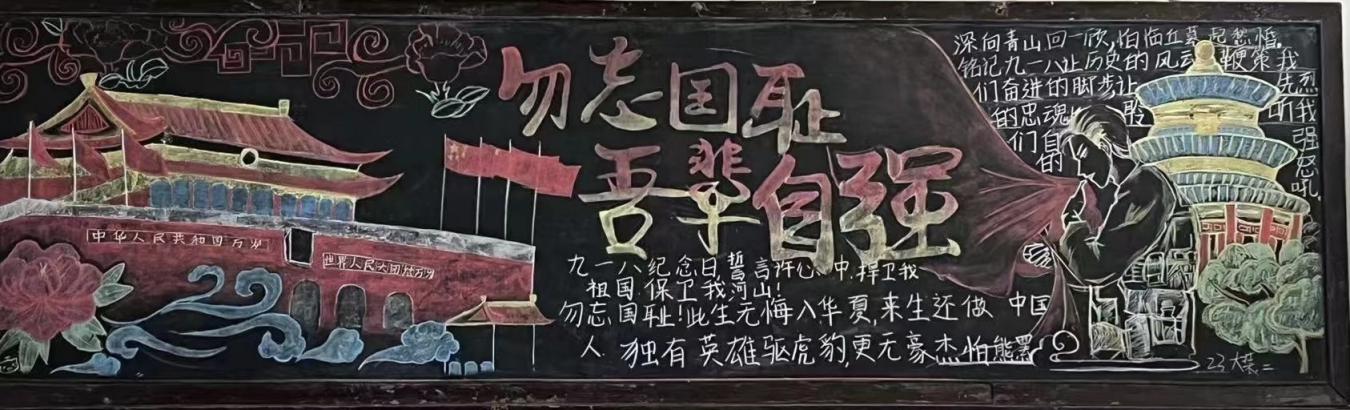 勿忘国耻
吾辈自强
中华人民共和国万岁
世界人民大团结万岁
九一八纪念日,誓言许心中,捍卫我
祖国,保卫我河山!
勿忘国耻!此生无悔入华夏,来生还做 中国
人 独有英雄驱虎豹,更无豪杰怕熊罴
深向青山回一欣,怕临丘墓起愁惜。
铭记九一八让历史的风云鞭策我
们奋进的脚步让 先烈
的忠魂 股 听我
们自 强
的 怒吼